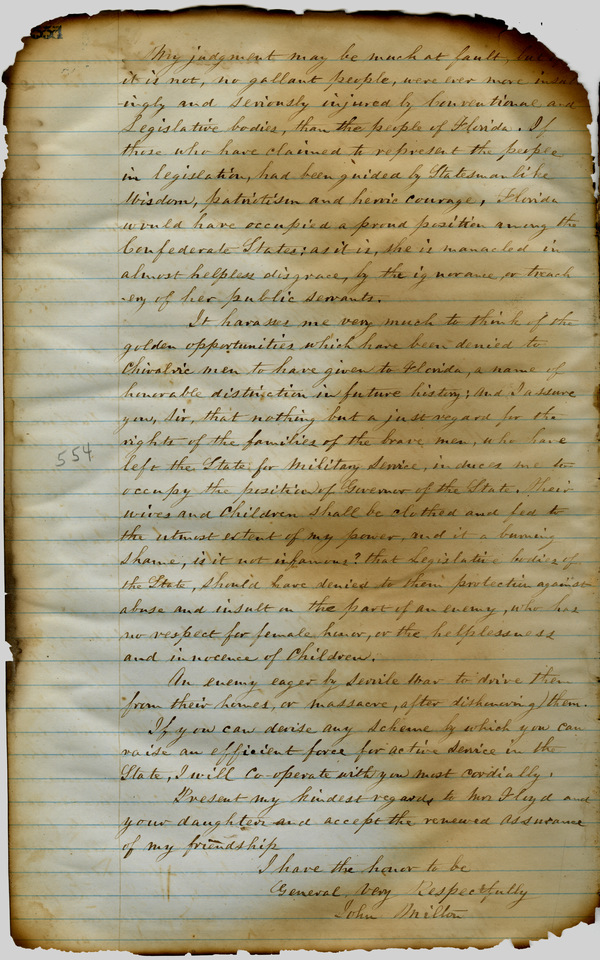 My judgment may be much at fault, but if
it is not, no gallant people, were ever more insult
ingly and seriously injured by Conventional and
Legislative bodies, than the people of Florida. If
those who have claimed to represent the people
in legislation, had been guided by Statesmanlike
Wisdom, patriotism and heroic courage, Florida
would have occupied a proud position among the
Confederate States; as it is, she is manacled in
almost helpless disgrace, by the ignorance, or treach
-ery of her public servants.
It harasses me very much to think of the
golden opportunities which have been denied to
Chivalric men to have given to Florida, a name of
honorable distinction in future history; and I assure
you, Sir, that nothing but a just regard for the
rights of the families of the brave men, who have
554
left the State for Military Service, induces me to
occupy the position of Governor of the State. Their
wives and Children shall be clothed and fed to
the utmost extent of my power, and it a burning
shame, is it not infamous? that Legislative bodies of
the State, should have denied to them protection against
abuse and insult on the part of an enemy, who has
no respect for female honor, or the helplessness
and innocence of Children.
An enemy eager by Servile War to drive them
from their homes, or massacre, after dishonoring them.
If you can devise any scheme by which you can
raise an efficient force for active service in the
State, I will Co-operate with you most cordially.
Present my kindest regards to Mrs Floyd and
your daughters and accept the renewed assurance
of my friendship
I have the honor to be
General, Very Respectfully
John Milton